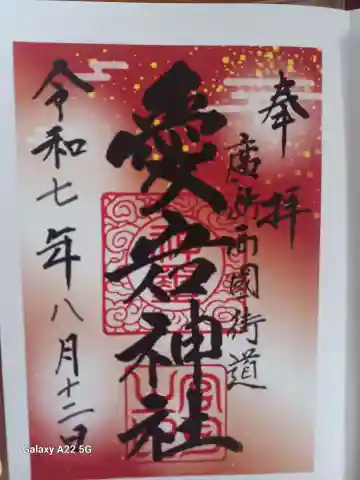 奉拝
廣島西國街道
愛宕神社
令和七年八月十二日
Galaxy A22 5G